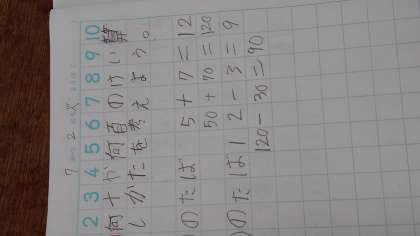 7 2
2 3 4 5 6 7 8 9 10
何十か何百のけい算
しかたを考えよう。
のたば 5+7=12
50+70=120
のたば 12-3=9
120-30=90